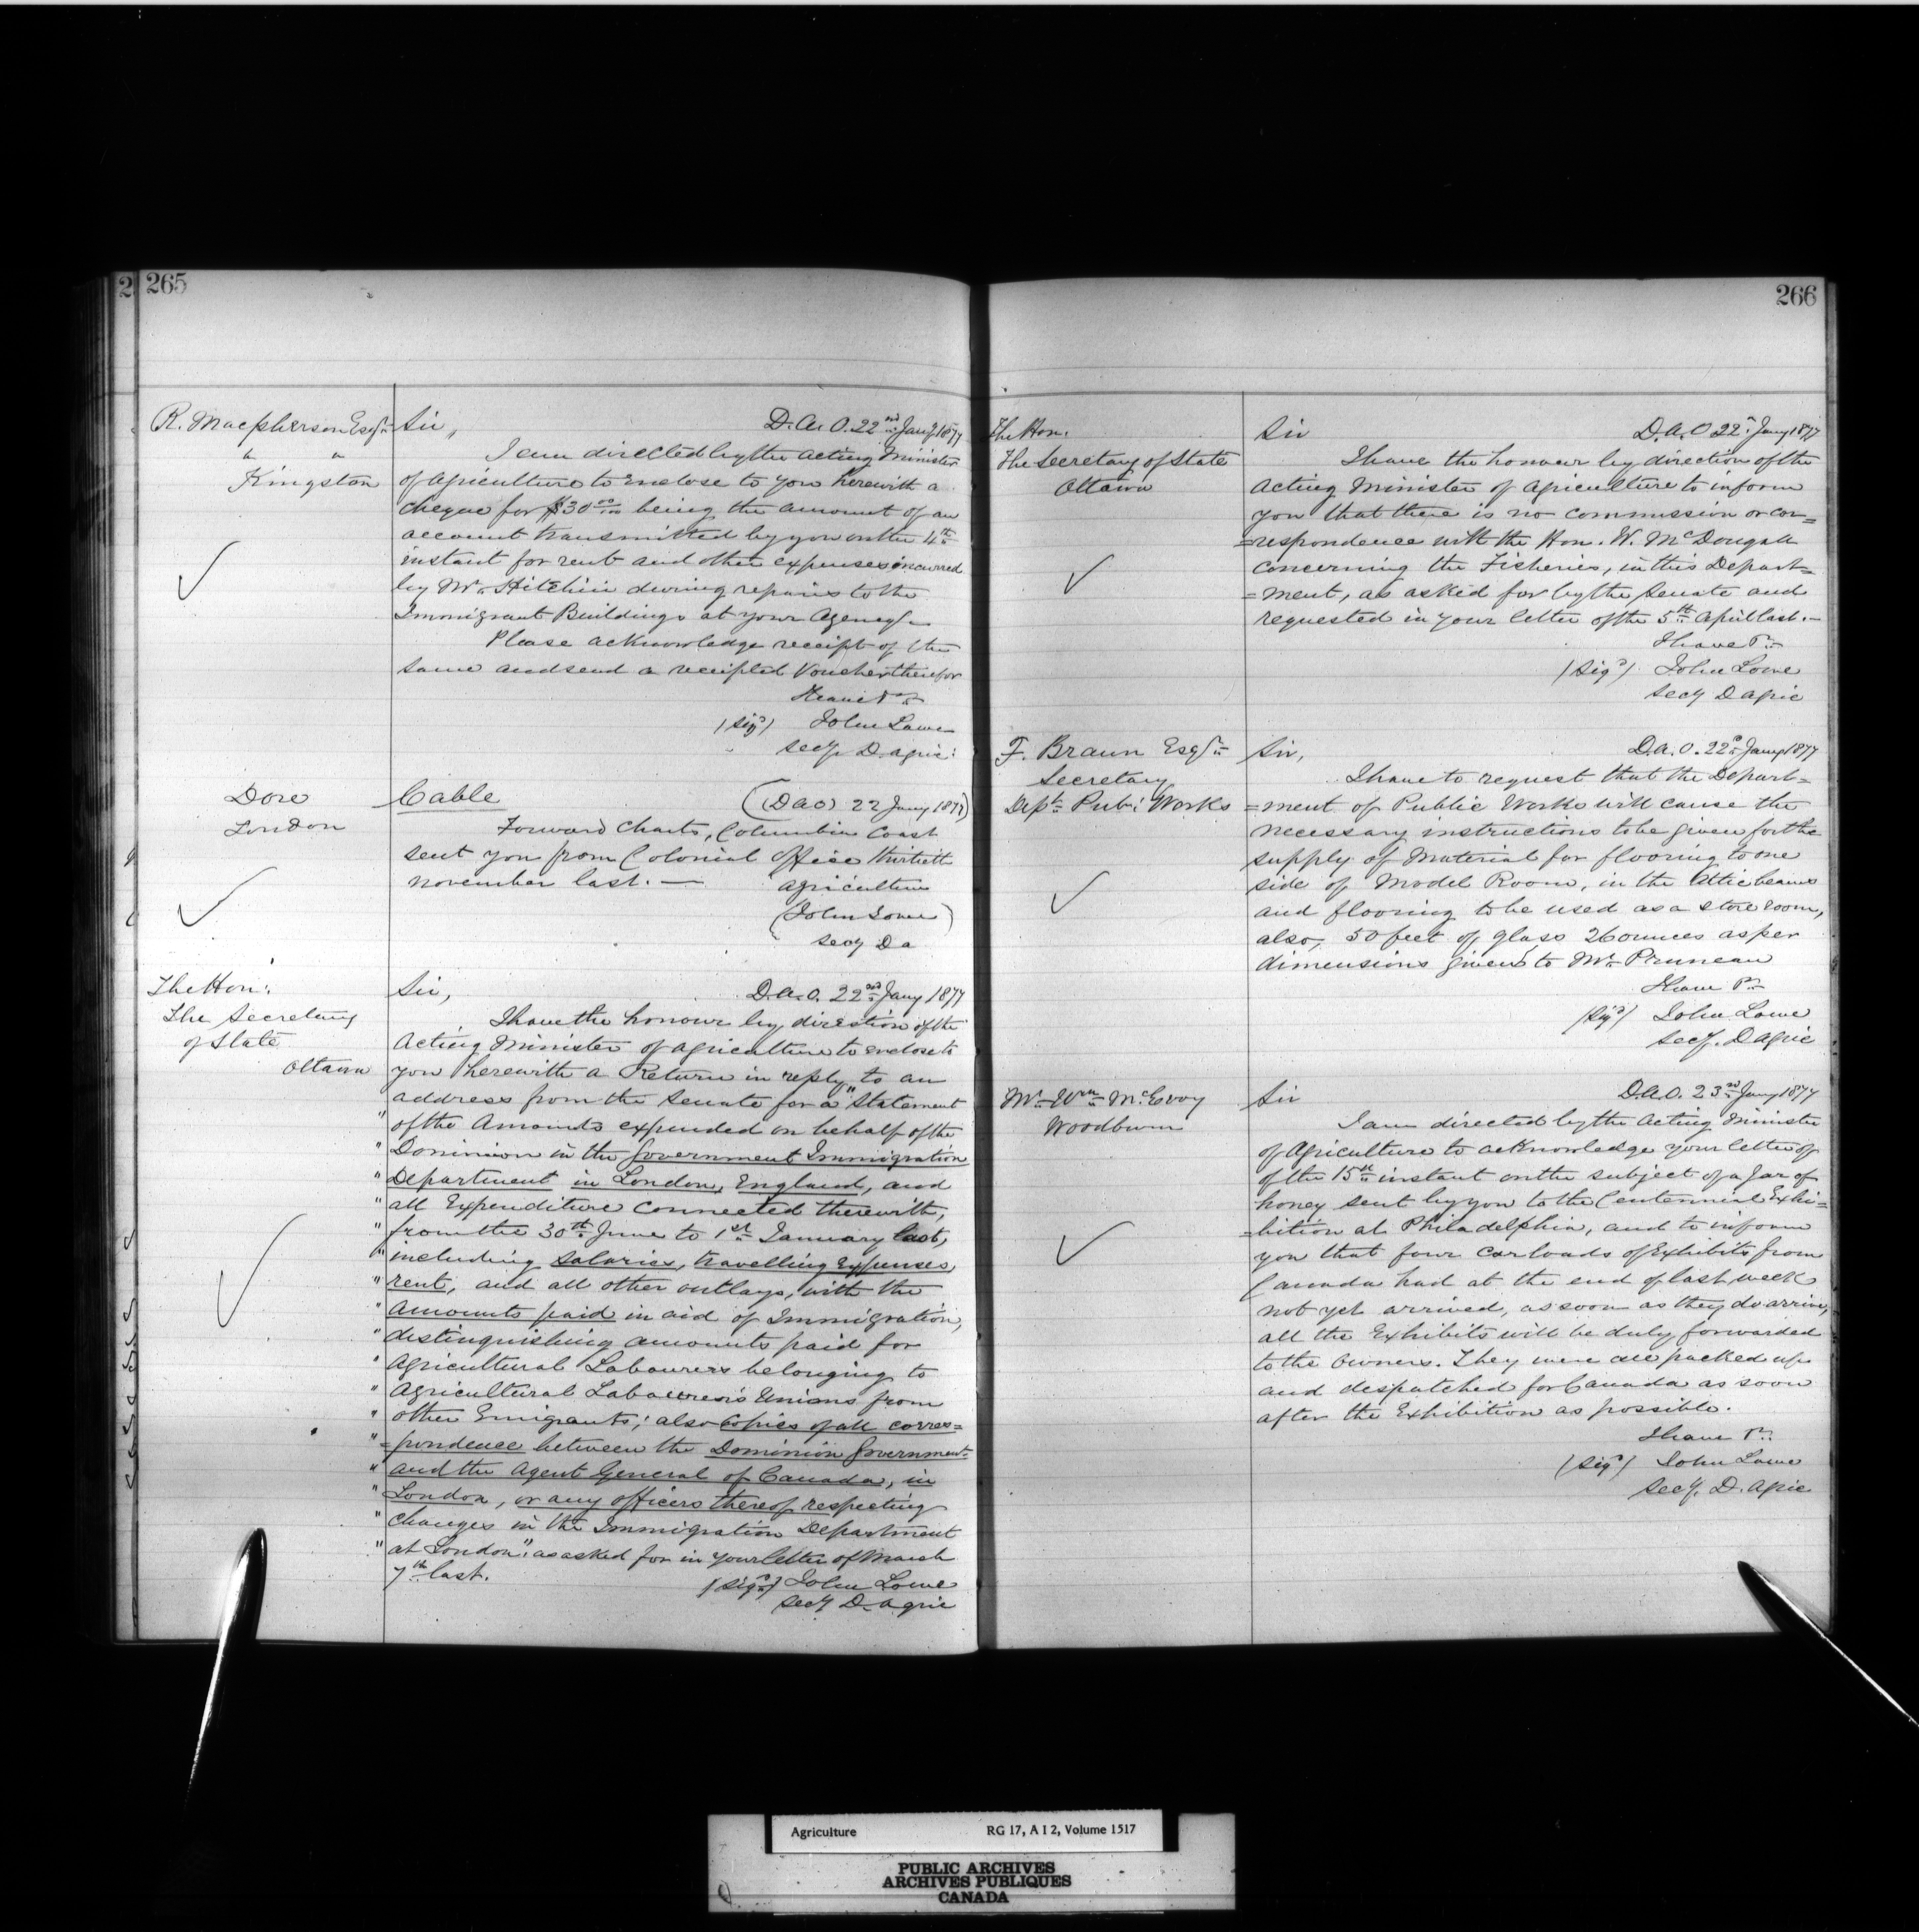 2 265
R. Macpherson Esqr
" "
Kingston
Sir,, D.A.O. 22nd Jany 1877
I am directed by the Acting Minister
of Agriculture to enclose to you herewith a
cheque for $30 00/100 being the amount of an
account transmitted by you on the 4th
instant for rent and other expenses incurred
by Mr Hitchin during repairs to the
Immigrant Buildings at your Agency.
Please acknowledge receipt of the
same and send a receipted Voucher therefor
(Sigd) John Lowe
Secy D Agric:
Dore
London
Cable (DAO) 22 Jany 1877)
Forward Charts, Columbia Coast
sent you from Colonial Office thirtieth
November last. —
Agriculture
(John Lowe)
Secy D A
The Hon:
The Secretary
of State
Ottawa
Sir, D.A.O. 22nd Jany 1877
I have the honour by direction of the
Acting Minister of Agriculture to enclose to
you herewith a Return in reply to an
address from the Senate for a "Statement
" of the Amounts expended on behalf of the
" Dominion in the Government Immigration
" Department in London, England, and
" all Expenditure connected therewith,
" from the 30th June to 1st January last,
" including salaries, travelling expenses,
" rent, and all other outlays, with the
" amounts paid in aid of Immigration,
" distinguishing amounts paid for
" Agricultural Labourers belonging to
" Agricultural Labourers Unions from
" other Emigrants; also Copies of all corres=
" =pondence between the Dominion Government
" and the Agent General of Canada, in
" London, or any officers thereof respecting
" Changes in the Immigration Department
" at London". as asked for in your letter of March
7th last.
(Sigd) John Lowe
Secy D. Agric
266
The Hon:
The Secretary of State
Ottawa
Sir D.A.O 22 Jany 1877
I have the honour by direction of the
Acting Minister of Agriculture to inform
you that there is no commission or cor=
=respondence with the Hon. W. McDougall
concerning the Fisheries, in this Depart=
=ment, as asked for by the Senate and
requested in your letter of the 5th April last.—
I have &c
(Sigd) John Lowe
Secy D Agric
F. Braun Esqr
Secretary
Dept. Pub: Works
Sir, D.A.O. 22d Jany 1877
I have to request that the Depart=
=ment of Public Works will cause the
necessary instructions to be given for the
supply of Material for flooring to one
side of Model Room, in the Attic beams
and flooring to be used as a store room,
also, 50 feet of glass 26 ounces as per
dimensions given to Mr Pruneau
I have &c
(Sigd) John Lowe
Secy. D Agric
Mr Wm McEvoy
Woodburn
Sir D.A.O. 23rd Jany 1877
I am directed by the Acting Minister
of Agriculture to acknowledge your letter of
of the 15th instant on the subject of a Jar of
honey sent by you to the Centennial Exhi=
=bition at Philadelphia, and to inform
you that four car loads of Exhibits from
Canada had at the end of last week
not yet arrived, as soon as they do arrive,
all the Exhibits will be duly forwarded
to the owners. They were all packed up
and despatched for Canada as soon
after the Exhibition as possible.
I have &c
(Sigd) John Lowe
Secy. D. Agric
Agriculture RG 17, A I 2, Volume 1517
PUBLIC ARCHIVES
ARCHIVES PUBLIQUES
CANADA